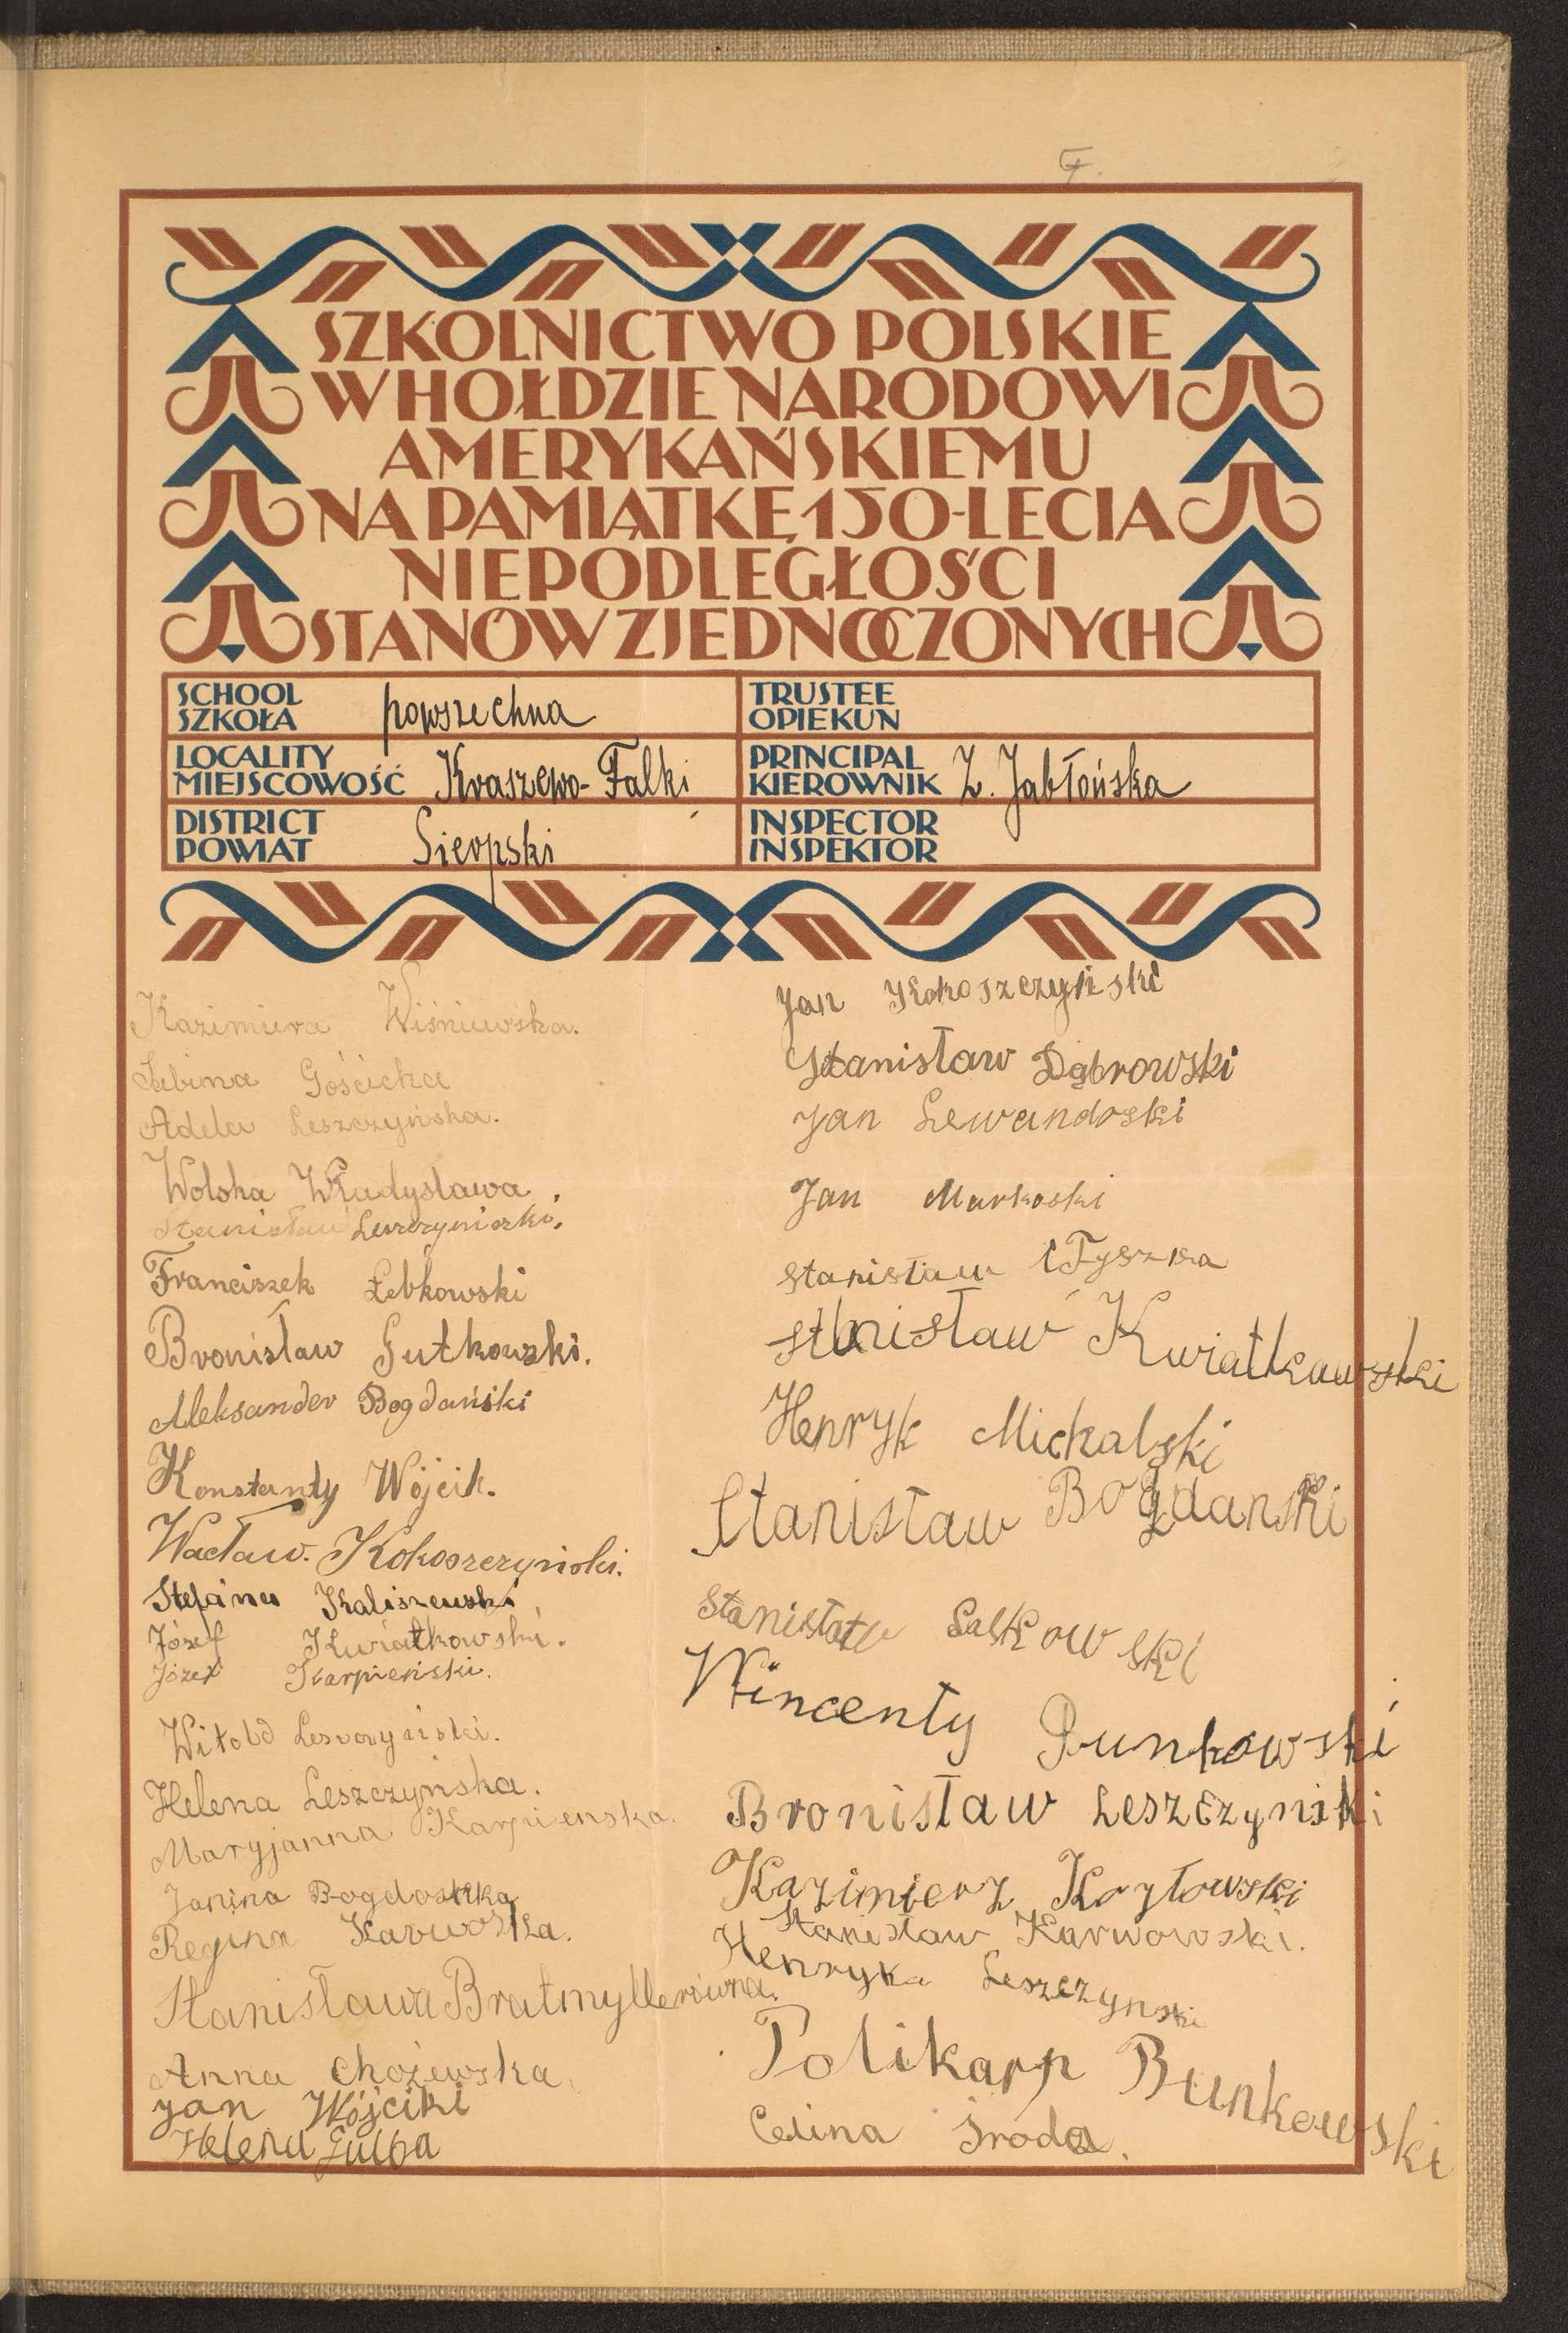 SZKOLNICTWO POLSKIE
W HOŁDZIE NARODOWI
AMERYKAŃSKIEMU
NA PAMIĄTKĘ 150-LECIA
NIEPODLEGŁOŚCI
STANÓW ZJEDNOCZONYCH
SCHOOL
SZKOŁA powszechna
TRUSTEE
OPIEKUN
LOCALITY
MIEJSCOWOŚĆ Kraszewo-Falki
PRINCIPAL
KIEROWNIK Z. Jabłońska
DISTRICT
POWIAT Sierpski
INSPECTOR
INSPEKTOR
Kazimiera Wiśniewska.
Sabina Gościcka
Adela Leszczyńska.
Wolska Władysława.
Stanisław Leszczyniski.
Franciszek Łebkowski
Bronisław Gutkowski.
Aleksander Bogdański
Konstanty Wójcik.
Wacław. Kokoszczyński.
Kaliszewski
Józef Kwiatkowski.
Józef Karpieński.
Witold
Helena Leszczyńska.
Maryjanna Karpienska.
Janina
Regina
Stanisława Bratmyllerówna.
Anna Chojewska
Jan Wójciki
Helena Gulba
Jan Kokoszczyński
Stanisław Dąbrowski
Jan Lewandoski
Jan Markoski
Stanisław Tyszka
Stanisław Kwiatkowski
Henryk Michalski
Stanisław Bogdański
Stanisław Laskowski
Wincenty Bunkowski
Bronisław Leszczynski
Kazimierz Kozłowski
Stanisław Karwowski.
Henryka Leszczynski
Polikarp Bunkowski
Celina Sroda.